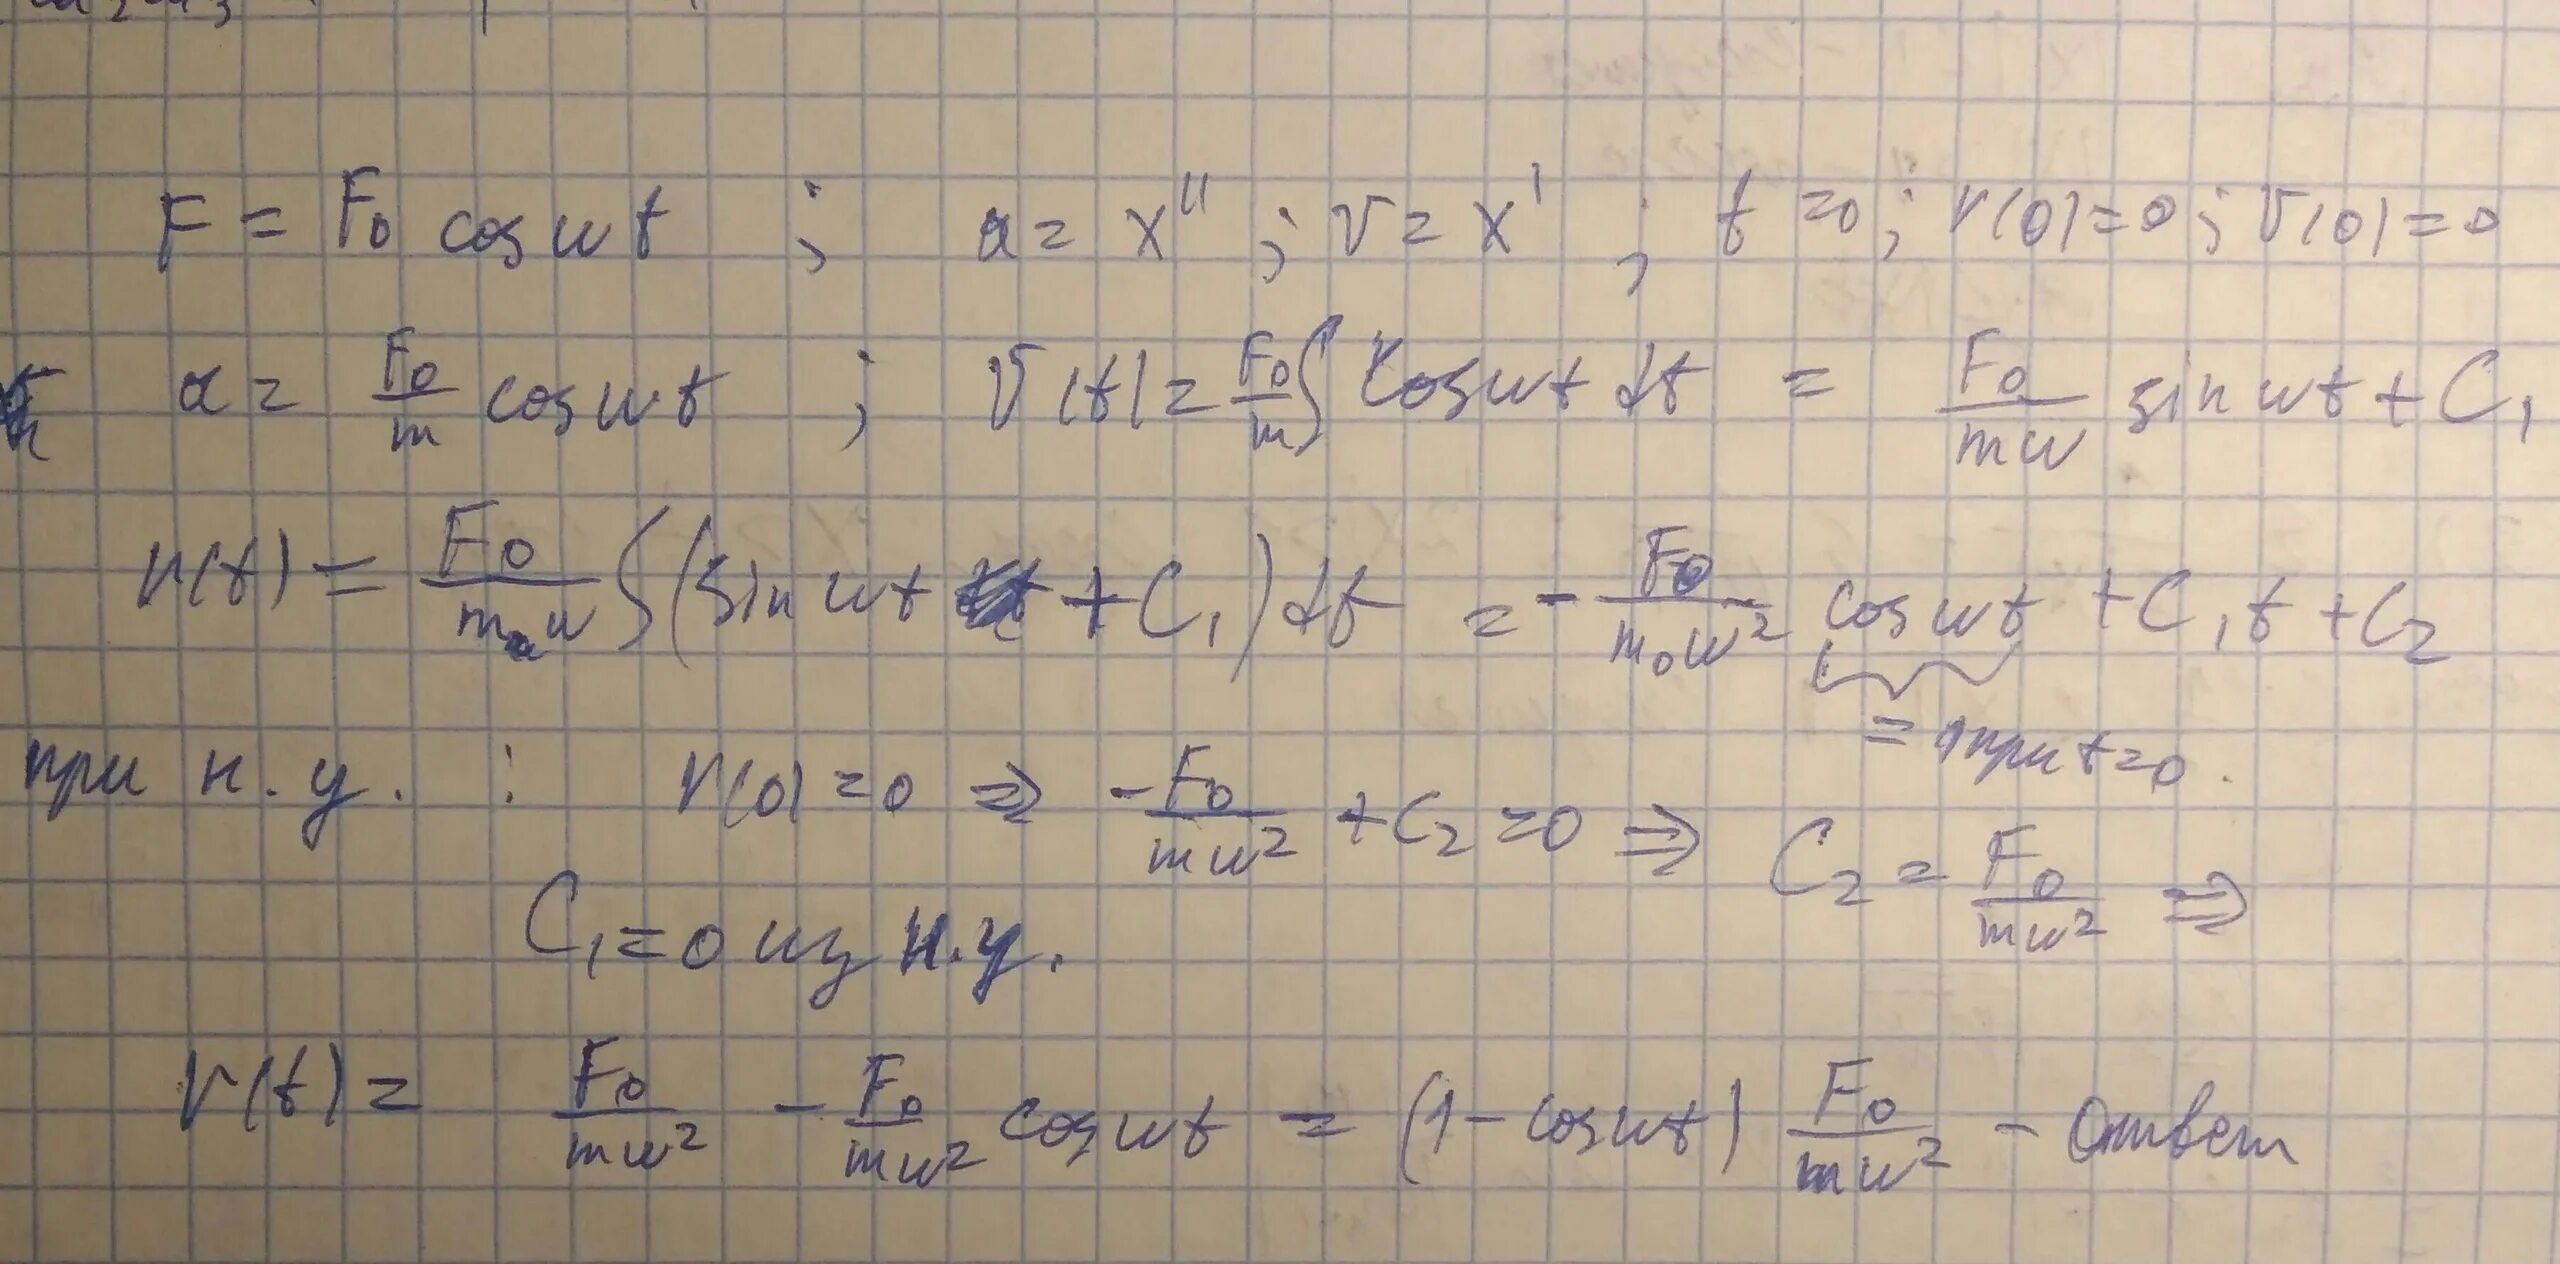 F = F₀ cos wt ; a = x'' ; v = x' ; t = 0 ; r(0) = 0 ; v(0) = 0
a = F₀/m cos wt ; v(t) = F₀/m ∫ cos wt dt = F₀/mw sin wt + C₁
r(t) = F₀/mw ∫ (sin wt + C₁) dt = - F₀/m₀w² cos wt + C₁t + C₂
= 1 при t = 0.
при н.у. : r(0) = 0 ⇒ - F₀/mw² + C₂ = 0 ⇒ C₂ = F₀/mw² ⇒
C₁ = 0 из н.у.
r(t) = F₀/mw² - F₀/mw² cos wt = (1 - cos wt) F₀/mw² - ответ